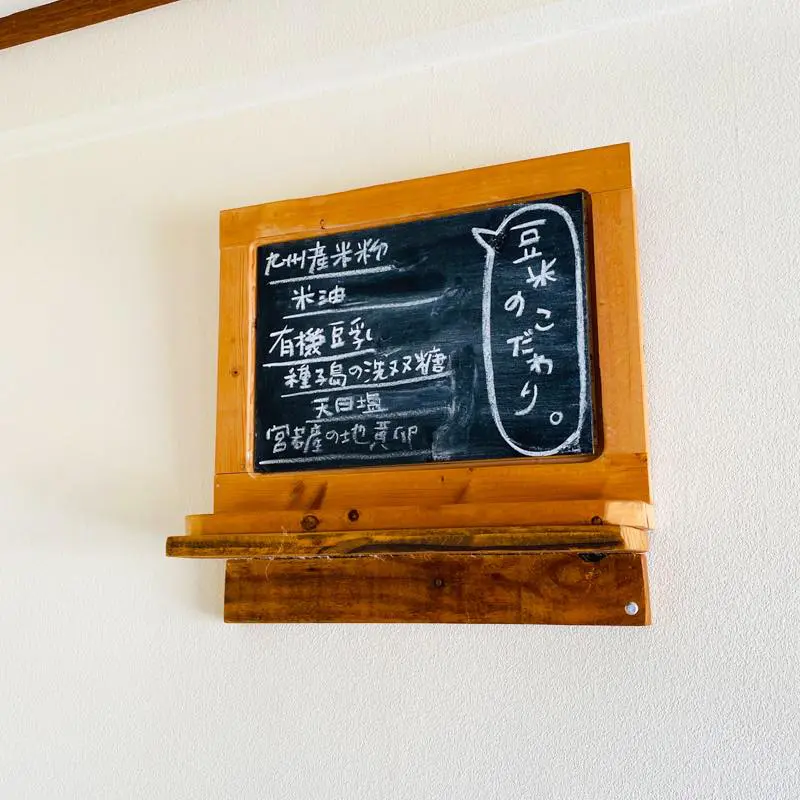 豆米のこだわり。
九州産米粉
米油
有機豆乳
種子島の洗双糖
天日塩
宮若産の地黄卵